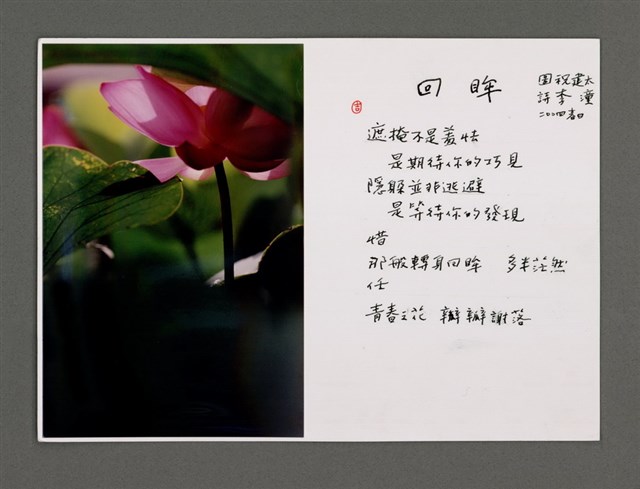 回眸
圖 祝建太
詩 李潼
遮掩不是羞怯
是期待你的巧見
隱躲並非逃避
是等待你的發現
惜
那般轉身回眸 多半茫然
任
青春之花 瓣瓣謝落